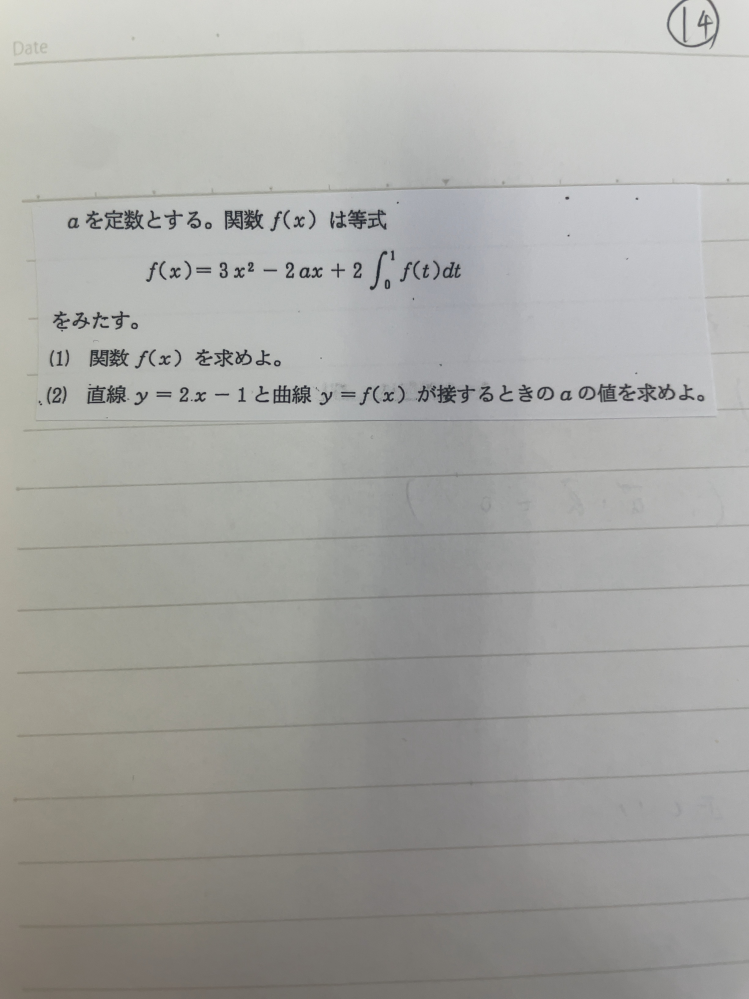 Date
⑭
aを定数とする。関数 f(x) は等式
f(x)=3x²-2ax+2∫₀¹f(t)dt
をみたす。
(1) 関数 f(x) を求めよ。
(2) 直線 y=2x-1と曲線 y=f(x) が接するときのaの値を求めよ。